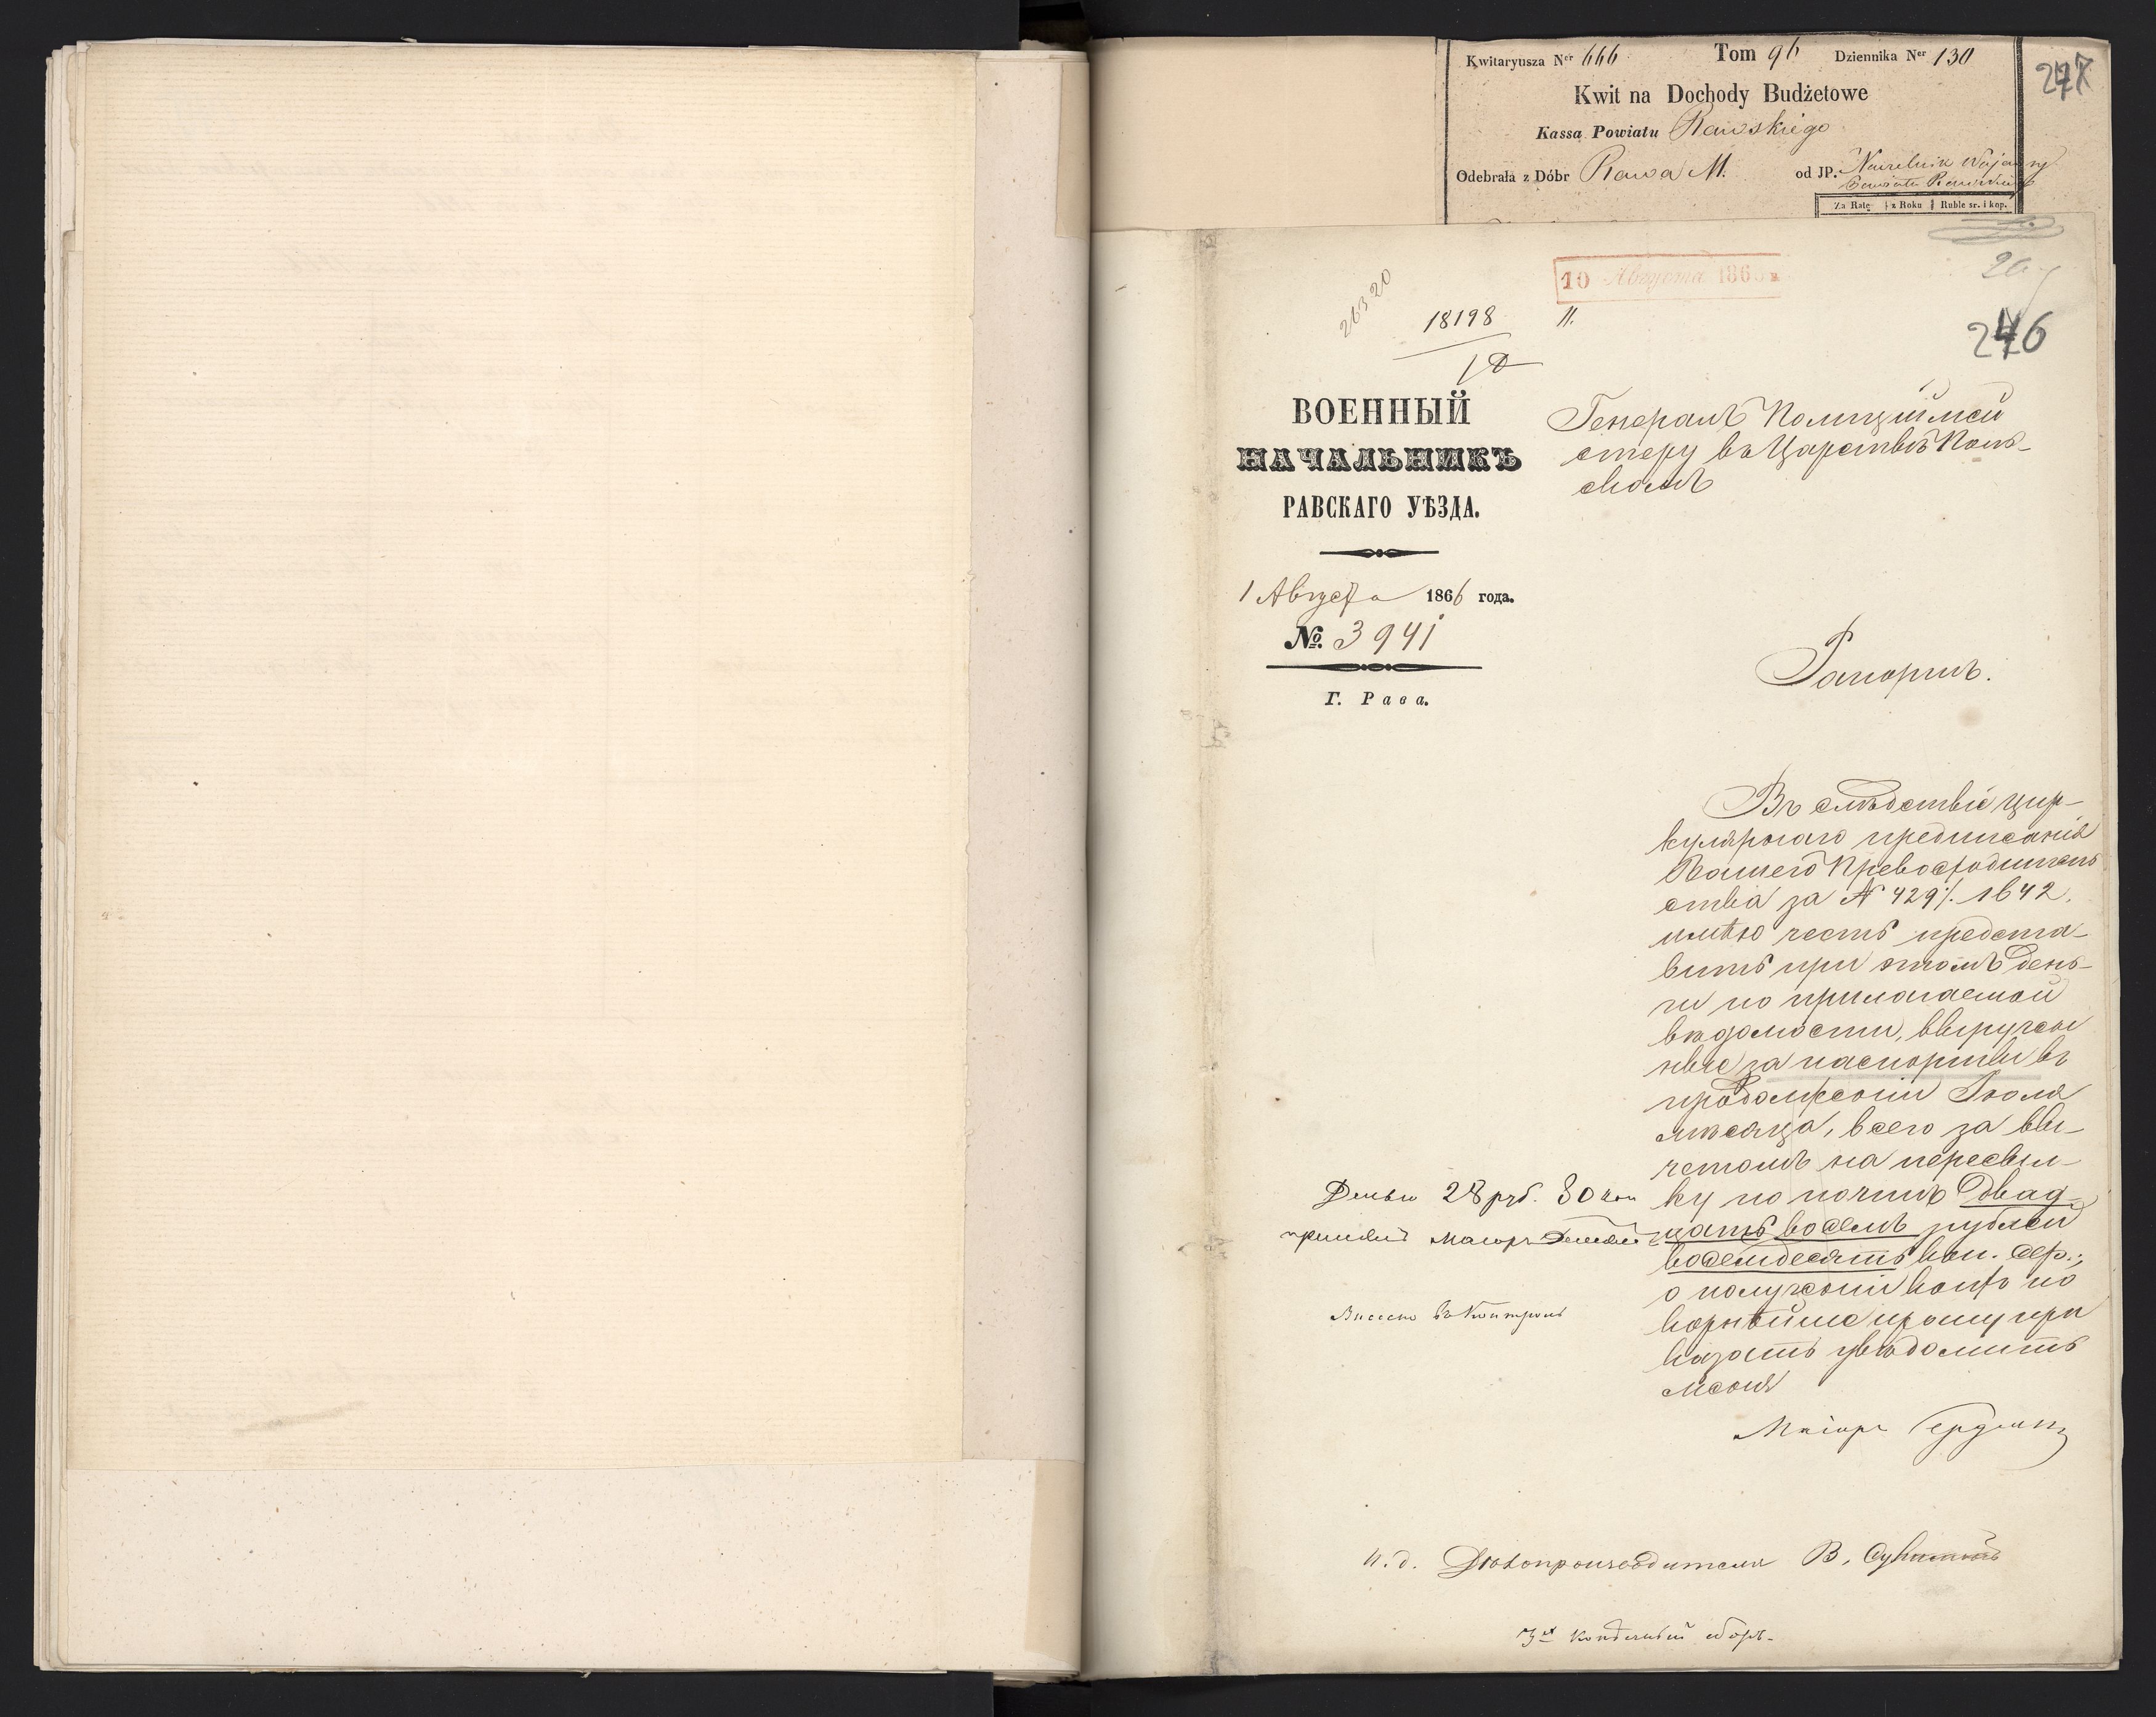 Kwitaryusza Ner 666 Tom 96 Dziennika Ner 130
277
Kwit na Dochody Budżetowe
Kassa Powiatu Rawskiego
Odebrała z Dóbr Rawa M. od JP. Naczelnik Wojenny
Powiatu Rawskiego
Za Ratę z Roku Ruble sr. i kop.
10 Августа 186
26320
18198
11.
10
276
ВОЕННЫЙ
НАЧАЛЬНИКЪ
РАВСКАГО УѢЗДА.
1 Августа 1866 года.
№ 3941
Г. Рава.
Генералъ Полиціймей
стеру въ Царствѣ Поль-
скомъ
Рапортъ.
Въ слѣдствіе цир-
кулярнаго предписанія
Вашего Превосходитель
ства за № 429/1642,
имѣю честь предста-
вить при этомъ день-
ги по прилагаемой
вѣдомости, выручен
ные за паспорты въ
продолженіи Іюля
мѣсяца, всего за вы-
четомъ на пересыл-
ку по почтѣ двад-
цать восемь рублей
восемдесять коп. сер.;
о полученіи коихъ по
корнѣйше прошу при
казать увѣдомить
меня
Деньги 28 руб. 80 коп
принялъ Маіоръ
Внесено въ Контроль
Маіоръ
И. д. Дѣлопроизводителя В.
3х копѣечный сборъ